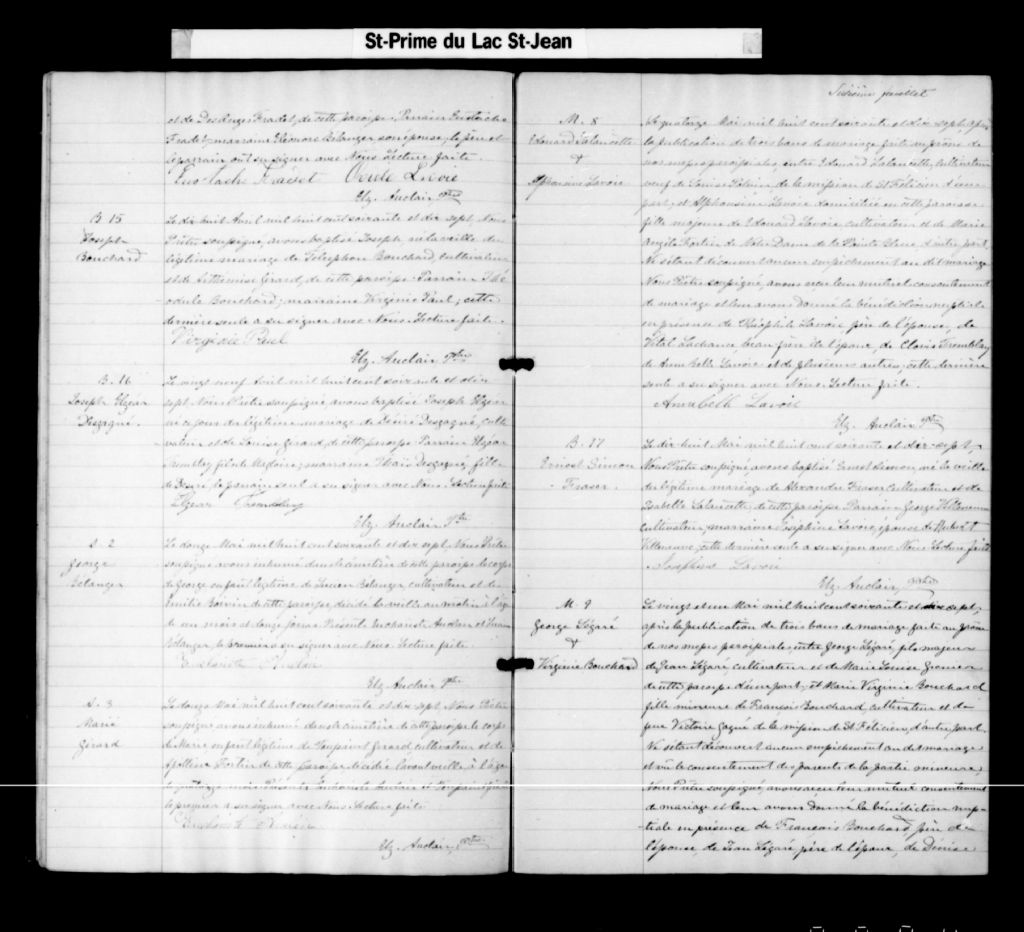 St-Prime du Lac St-Jean
et de Desanges Fradet, de cette paroisse. Parrain Eustache
Fradet, marraine Eléonore Belanger son épouse, le père et
le parrain ont su signer avec Nous. Lecture faite.
Eustache Fradet
Elz. Auclair Ptre
B. 15
Joseph
Bouchard
Le dix huit Avril mil huit cent soixante et dix sept Nous
Prêtre soussigné, avons baptisé Joseph, né la veille du
légitime mariage de Télesphore Bouchard, cultivateur
et de Girard, de cette paroisse. Parrain Thé
odule Bouchard; marraine Virginie Paul; cette
dernière seule a su signer avec Nous. Lecture faite.
Virginie Paul
Elz. Auclair Ptre
B. 16
Joseph Elzéar
Desgagné.
Le vingt neuf Avril mil huit cent soixante et dix
sept Nous Prêtre soussigné, avons baptisé Joseph Elzéar
né ce jour du légitime mariage de Désiré Desgagné, culti
vateur et de Louise Girard, de cette paroisse. Parrain Elzéar
Tremblay fils de Magloire; marraine Desgagné, fille
de Désiré, le parrain seul a su signer avec Nous. Lecture faite
Elzear Tremblay
Elz. Auclair Ptre
S. 2
George
Belanger
Le douze Mai mil huit cent soixante et dix sept Nous Prêtre
soussigné avons inhumé dans le cimetière de cette paroisse le corps
de George enfant légitime de Belanger cultivateur et de
Emilie Boivin de cette paroisse, décédé la veille au matin à l'âge
de un mois et douze jours. Présent Auclair et
Bélanger, le premier a su signer avec Nous. Lecture faite.
Elz. Auclair Ptre
S. 3
Marie
Girard
Le douze Mai mil huit cent soixante et dix sept Nous Prêtre
soussigné avons inhumé dans le cimetière de cette paroisse le corps
de Marie enfant légitime de Girard cultivateur et de
Fortin de cette paroisse décédée l'avant veille, à l'âge
de mois. Auclair et
le premier a su signer avec Nous. Lecture faite
Elz. Auclair, Ptre
feuillet
M. 8
Edouard Lalancette
&
Alphonsine Lavoie
Le quatorze Mai mil huit cent soixante et dix sept, après
la publication de trois bans de mariage faite au prône
de nos messes paroissiales, entre Edouard Lalancette, cultivateur
veuf de Louise de la mission de St Félicien d'une
part; et Alphonsine Lavoie domiciliée en cette paroisse
fille majeure de Edouard Lavoie cultivateur et de Marie
Fortin de Notre Dame de la d'autre part,
Ne s'étant découvert aucun empêchement au dit mariage
Nous Prêtre soussigné, avons reçu leur mutuel consentement
de mariage et leur avons donné la bénédiction nuptiale
en présence de Théophile Lavoie père de l'épouse, de
Vital Lachance, beau-frère de l'époux, de Clovis Tremblay
de Annabelle Lavoie et de plusieurs autres; cette dernière
seule a su signer avec Nous. Lecture faite.
Annabelle Lavoie
Elz. Auclair Ptre
B. 17
Ernest Simeon
Fraser.
Le dix huit Mai mil huit cent soixante et dix-sept,
Nous Prêtre soussigné avons baptisé Ernest Simeon, né la veille
du légitime mariage de Alexandre Fraser cultivateur et de
Isabelle Lalancette, de cette paroisse Parrain George Villeneuve
cultivateur, marraine Joséphine Lavoie, épouse de Hubert
Villeneuve, cette dernière seule a su signer avec Nous Lecture faite
Josephine Lavoie
Elz. Auclair, Ptre
M. 9
George Légaré
&
Virginie Bouchard
Le vingt et un Mai mil huit cent soixante et dix sept,
après la publication de trois bans de mariage faite au prône
de nos messes paroissiales, entre George Légaré, fils majeur
de Jean Légaré, cultivateur et de Marie Louise Grenier
de cette paroisse d'une part; et Marie Virginie Bouchard
fille mineure de François Bouchard, cultivateur et de
feue Victoire Gagné de la mission de St Félicien, d'autre part.
Ne s'étant découvert aucun empêchement au dit mariage
et vu le consentement des parents de la partie mineure,
Nous Prêtre soussigné, avons reçu leur mutuel consentement
de mariage et leur avons donné la bénédiction nup-
tiale en présence de François Bouchard, père de
l'épouse, de Jean Légaré, père de l'époux, de Denise